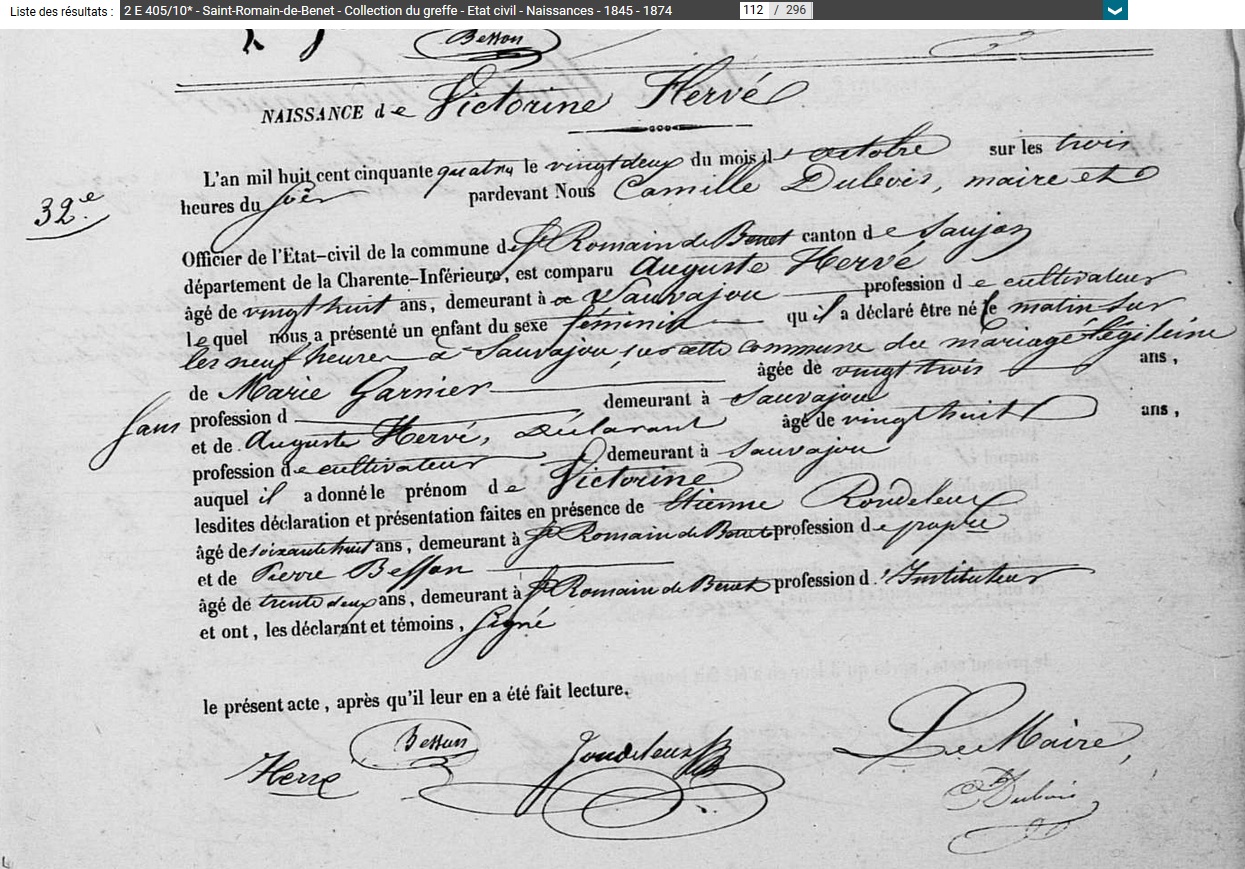 Liste des résultats : 2 E 405/10* - Saint-Romain-de-Benet - Collection du greffe - Etat civil - Naissances - 1845 - 1874 112 / 296
Besson
NAISSANCE de Victorine Hervé
L'an mil huit cent cinquante quatre le vingt deux du mois d'octobre sur les trois
32.e
heures du soir pardevant Nous Camille Dubois, maire et
Officier de l'Etat-civil de la commune de St Romain de Benet canton de Saujon
département de la Charente-Inférieure, est comparu Auguste Hervé
âgé de vingt huit ans, demeurant à Sauvajou profession de cultivateur
lequel nous a présenté un enfant du sexe féminin qu'il a déclaré être né le matin sur
les neuf heures à Sauvajou, cette commune du mariage légitime
de Marie Garnier âgée de vingt trois ans,
Sans profession d demeurant à Sauvajou
et de Auguste Hervé, Déclarant âgé de vingt huit ans,
profession de cultivateur demeurant à Sauvajou
auquel il a donné le prénom de Victorine
lesdites déclaration et présentation faites en présence de Etienne Rondeleux
âgé de soixante huit ans, demeurant à St Romain de Benet profession de propre
et de Pierre Besson
âgé de trente deux ans, demeurant à St Romain de Benet profession d'Instituteur
et ont, les déclarant et témoins, Signé
le présent acte, après qu'il leur en a été fait lecture.
Hervé Besson Rondeleux Le Maire,
Dubois